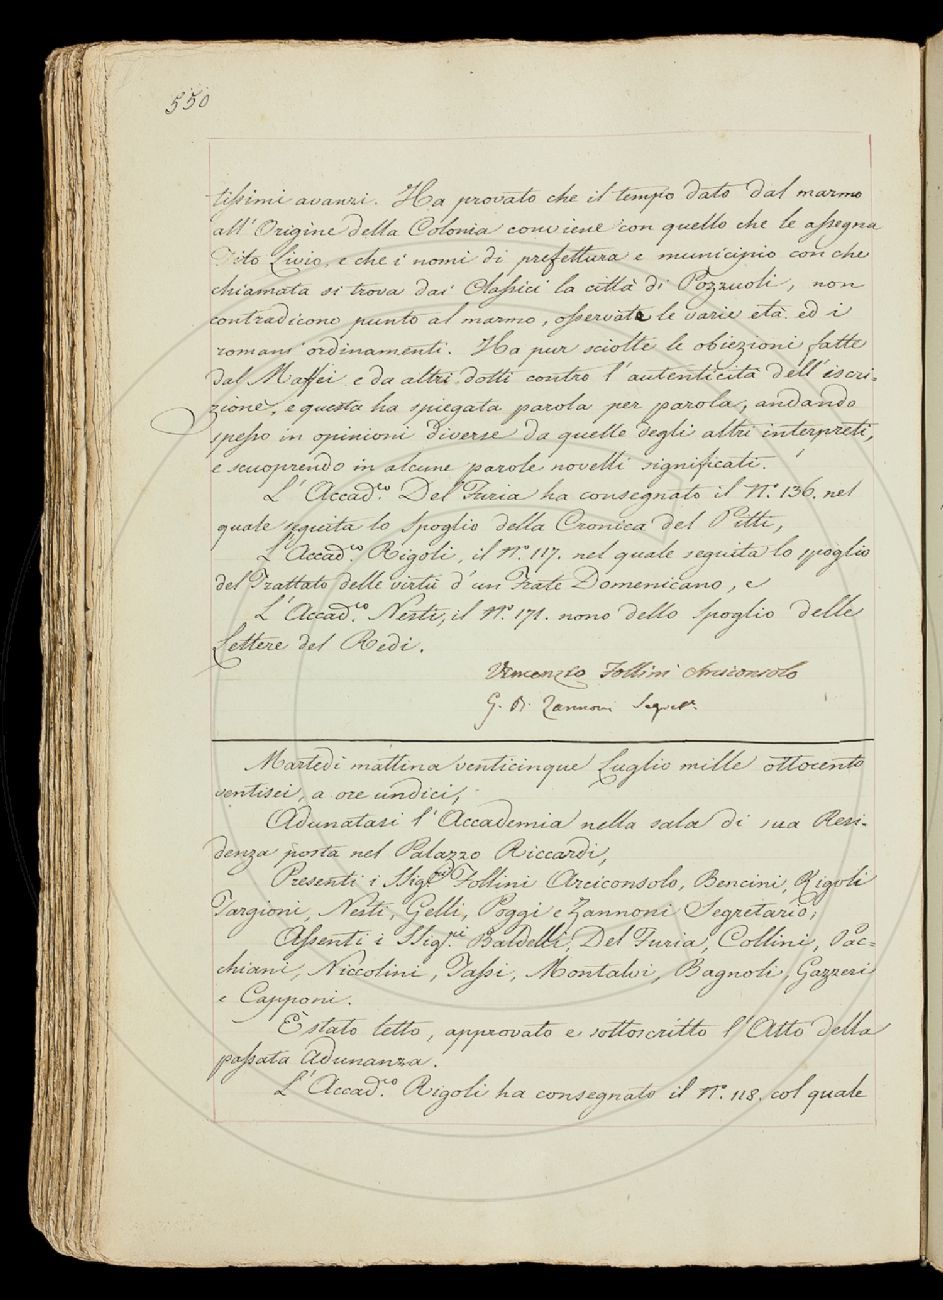 550
tissimi avanzi. Ha provato che il tempo dato dal marmo
all'Origine della Colonia conviene con quello che le assegna
Tito Livio, e che i nomi di prefettura e municipio con che
chiamata si trova dai Classici la città di Pozzuoli, non
contradicono punto al marmo, osservate le varie età ed i
romani ordinamenti. Ha pur sciolte le obiezioni fatte
dal Maffei e da altri dotti contro l'autenticità dell'iscri-
zione, e questa ha spiegata parola per parola, andando
spesso in opinioni diverse da quelle degli altri interpreti,
e scuoprendo in alcune parole novelli significati.
L'Accad.co Del Furia ha consegnato il N.o 136. nel
quale seguita lo Spoglio della Cronica del Pitti,
L'Accad.co Rigoli, il N.o 117. nel quale seguita lo spoglio
del Trattato delle virtù d'un Frate Domenicano, e
L'Accad.co Nesti, il N.o 171. nono dello Spoglio delle
Lettere del Redi.
Vincenzio Follini Arciconsolo
G. B. Zannoni Segret.o
Martedì mattina venticinque Luglio mille ottocento
ventisei, a ore undici,
Adunatasi l'Accademia nella sala di sua Resi-
denza posta nel Palazzo Riccardi,
Presenti i SSig.ri Follini Arciconsolo, Bencini, Rigoli
Targioni, Nesti, Gelli, Poggi e Zannoni Segretario;
Assenti i SSig.ri Baldelli, Del Furia, Collini, Pac-
chiani, Niccolini, Tassi, Montalvi, Bagnoli, Gazzeri
e Capponi.
È stato letto, approvato e sottoscritto l'Atto della
passata Adunanza.
L'Accad.co Rigoli ha consegnato il N.o 118. col quale